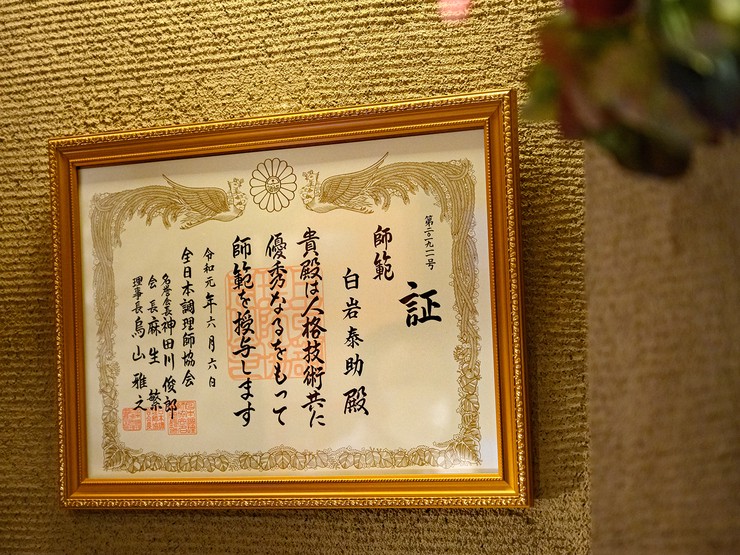 証
師範
白岩泰助殿
貴殿は人格技術共に
優秀なるをもって
師範を授与します
令和元年六月六日
全日本調理師協会
名誉会長神田川俊郎
会長麻生繁
理事長烏山雅之